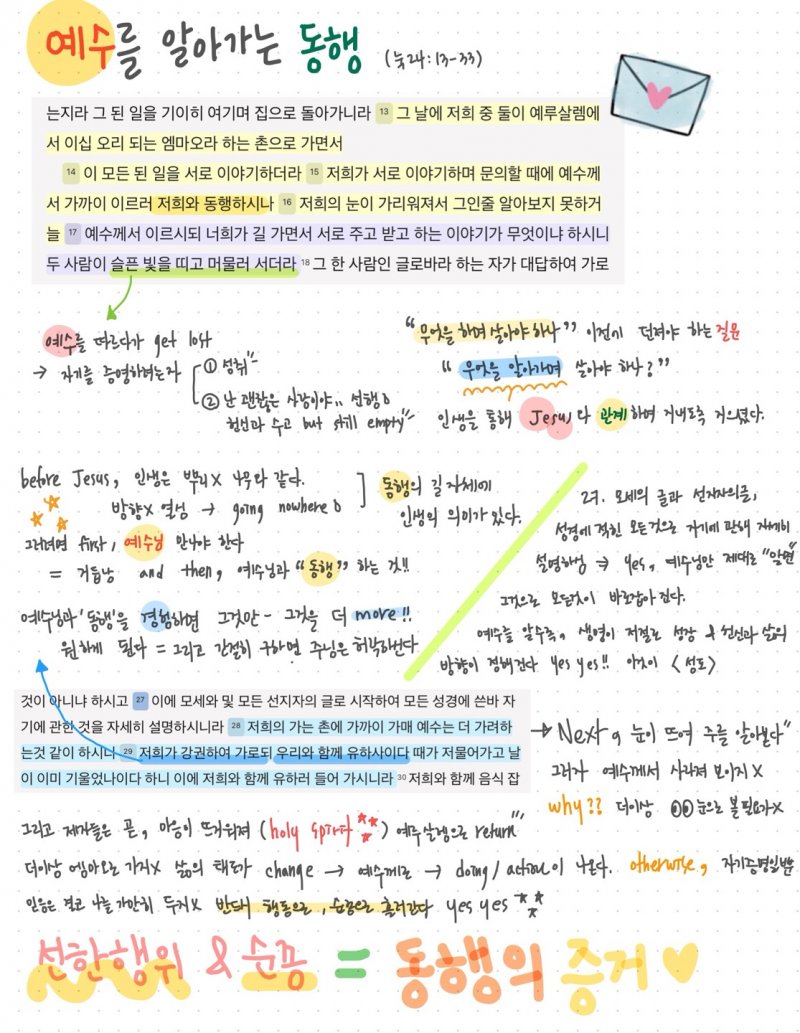 예수를 알아가는 동행 (눅24:13-33)
는지라 그 된 일을 기이히 여기며 집으로 돌아가니라 13 그 날에 저희 중 둘이 예루살렘에
서 이십 오리 되는 엠마오라 하는 촌으로 가면서
14 이 모든 된 일을 서로 이야기하더라 15 저희가 서로 이야기하며 문의할 때에 예수께
서 가까이 이르러 저희와 동행하시나 16 저희의 눈이 가리워져서 그인줄 알아보지 못하거
늘 17 예수께서 이르시되 너희가 길 가면서 서로 주고 받고 하는 이야기가 무엇이냐 하시니
두 사람이 슬픈 빛을 띠고 머물러 서더라 18 그 한 사람인 글로바라 하는 자가 대답하여 가로
예수를 따르다가 get lost
→ 자기를 증명하려는자
① 성취"
② 난 괜찮은 사람이야.. 선행
헌신과 수고 but still empty"
"무엇을 하며 살아야 하나" 이전에 던져야 하는 질문
"무엇을 알아가며 살아야 하나?"
인생을 통해 Jesus와 관계하며 지내도록 지으셨다.
before Jesus, 인생은 뿌리X 나무와 같다.
방향X 열심 → going nowhere
동행의 길 자체에
인생의 의미가 있다.
그러려면 first, 예수님 만나야 한다
= 거듭남 and then, 예수님과 "동행" 하는 것!!
예수님과 '동행'을 경험하면 그것만- 그것을 더 more!!
원하게 된다 = 그리고 간절히 구하면 주님은 허락하신다
27. 모세의 글과 선지자의글,
성경에 적힌 모든것으로 자기에 관해 자세히
설명하심 ⇒ yes, 예수님만 제대로 "알면"
그것으로 모든것이 바로잡아 진다.
예수를 알수록, 생명이 저절로 성장 & 헌신과 삶의
방향이 정해진다 yes yes!! 이것이 <성도>
것이 아니냐 하시고 27 이에 모세와 및 모든 선지자의 글로 시작하여 모든 성경에 쓴바 자
기에 관한 것을 자세히 설명하시니라 28 저희의 가는 촌에 가까이 가매 예수는 더 가려하
는것 같이 하시니 29 저희가 강권하여 가로되 우리와 함께 유하사이다 때가 저물어가고 날
이 이미 기울었나이다 하니 이에 저희와 함께 유하러 들어 가시니라 30 저희와 함께 음식 잡
→ Next, 눈이 뜨여 주를 알아본다"
그러자 예수께서 사라져 보이지X
why?? 더이상 눈으로 볼 필요가X
그리고 제자들은 곧, 마음이 뜨거워져 (holy spirit) 예루살렘으로 return"
더이상 엠마오로 가지X 삶의 태도가 change → 예수께로 → doing / action이 나온다. otherwise, 자기증명일뿐
믿음은 결코 나를 가만히 두지X 반드시 행동으로, 순종으로 흘러간다 yes yes
선한행위 & 순종 = 동행의 증거